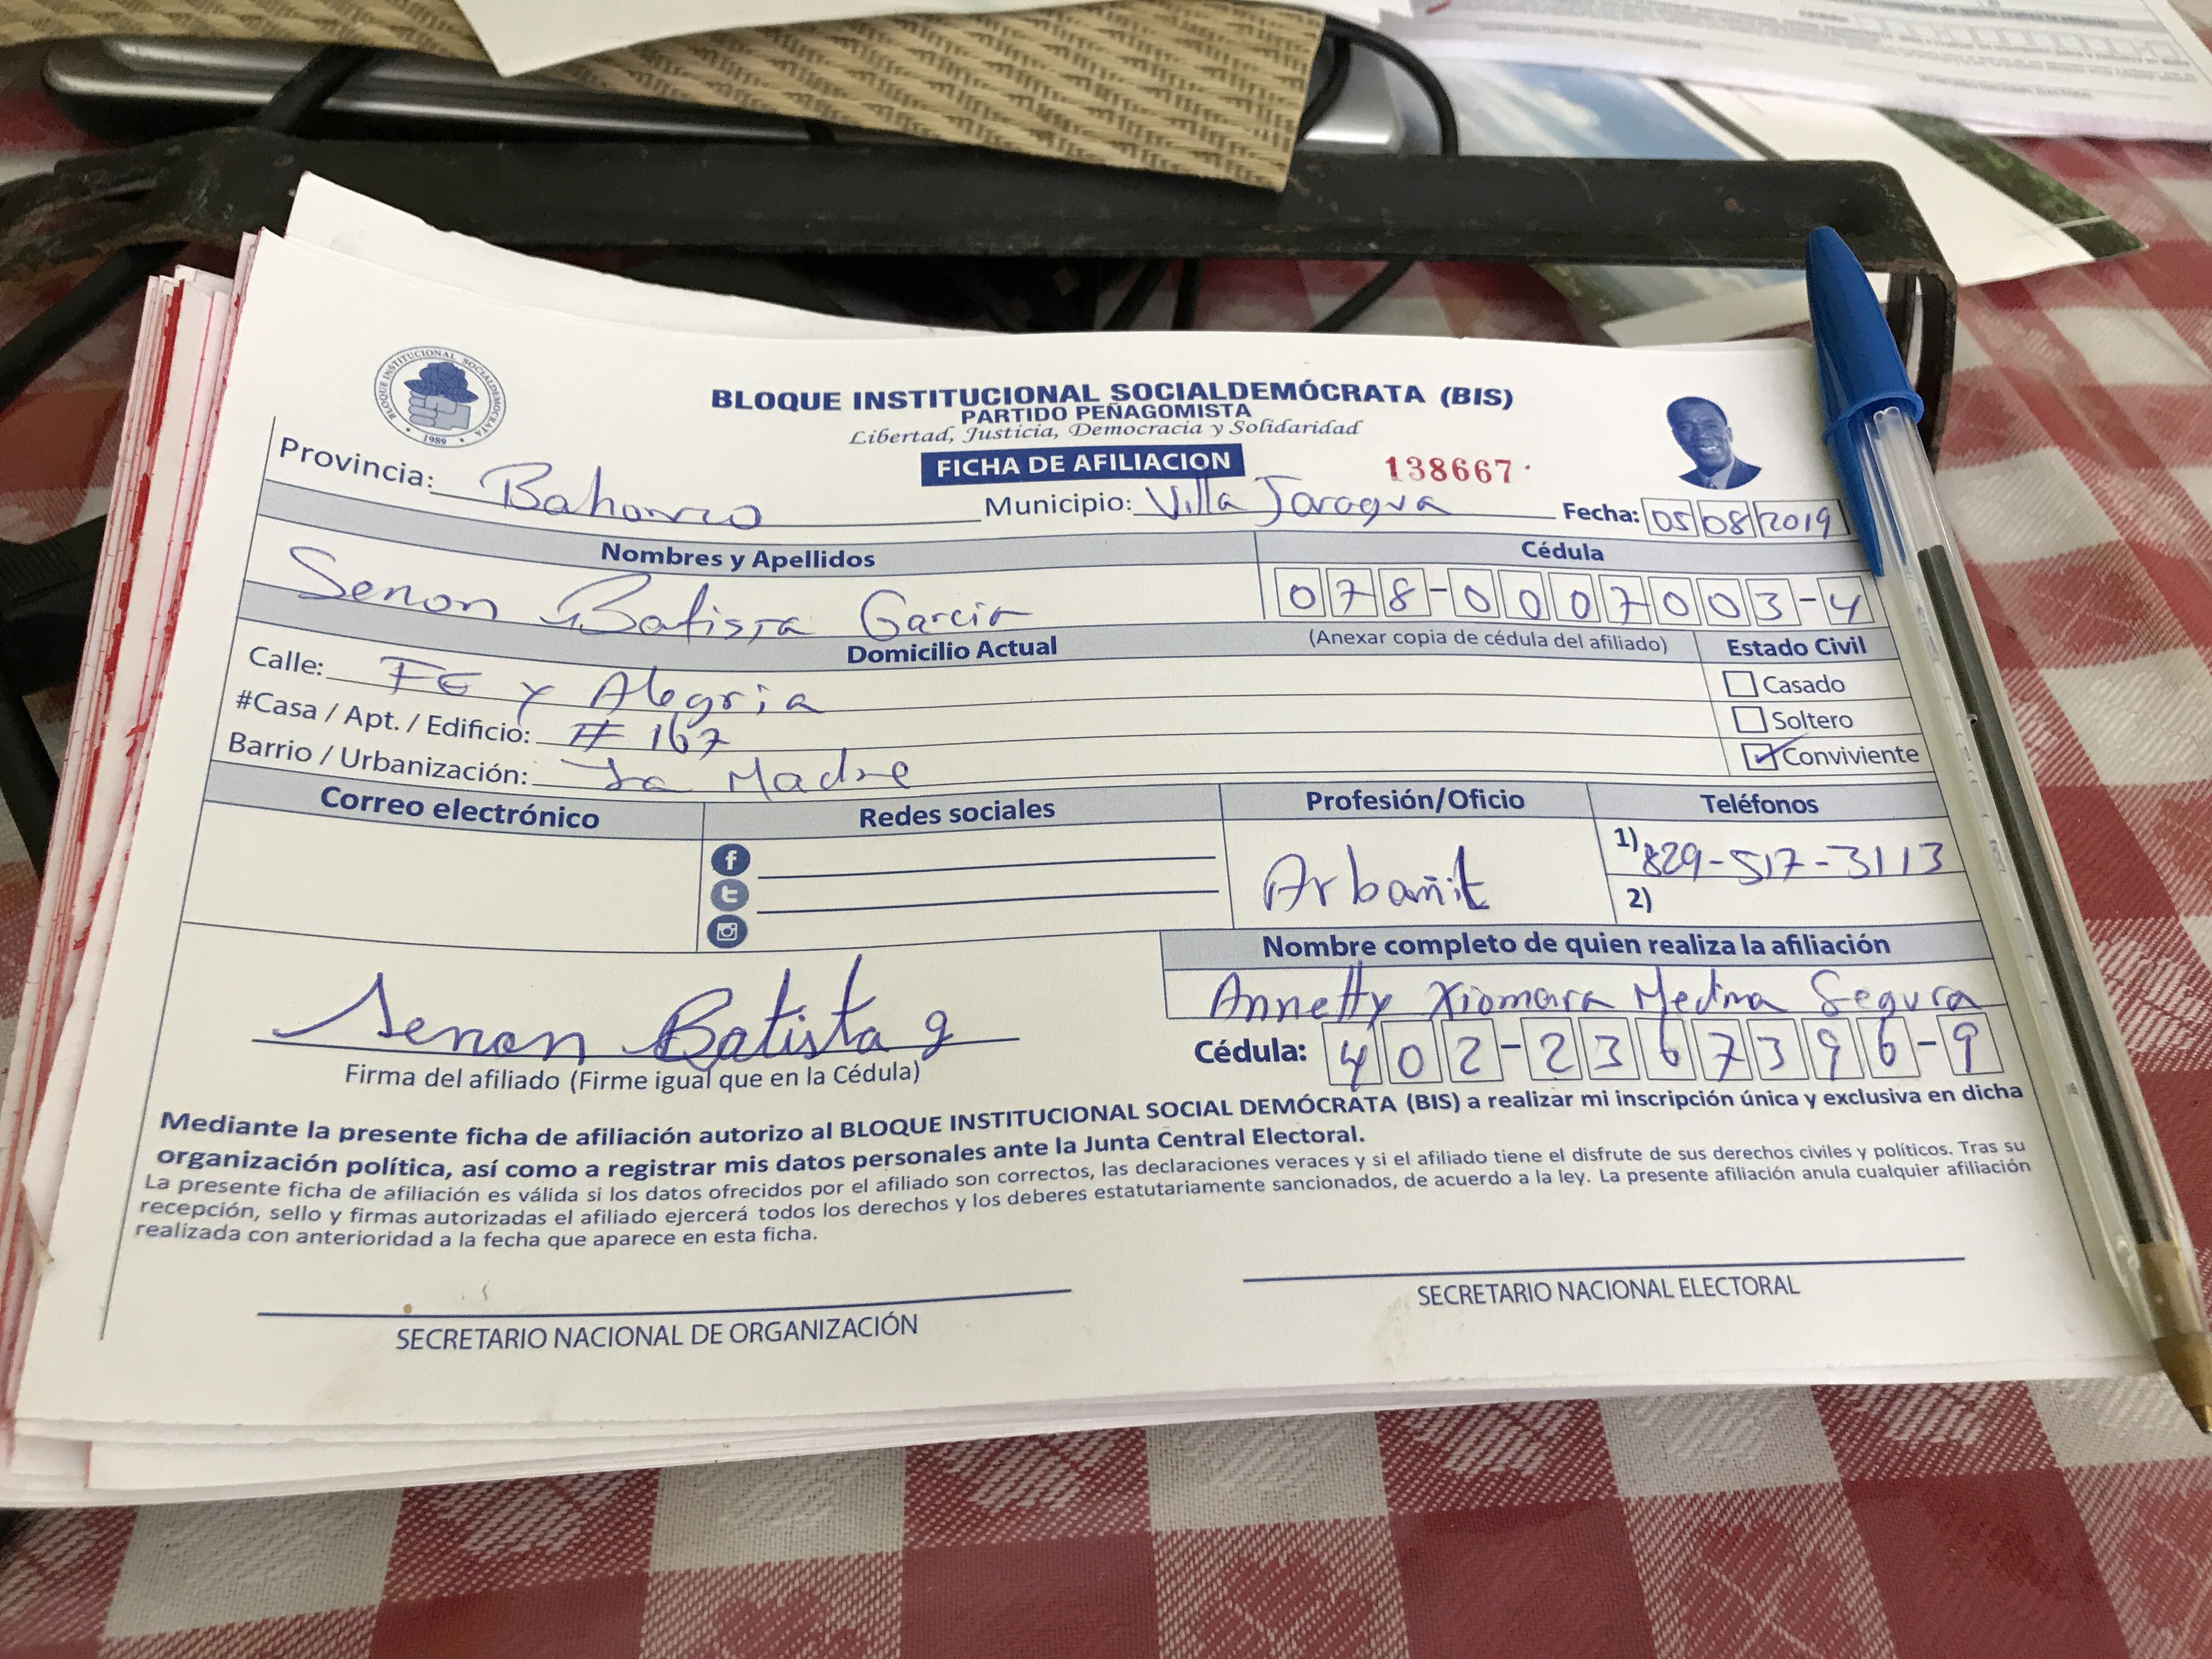 BLOQUE INSTITUCIONAL SOCIALDEMÓCRATA
1989
BLOQUE INSTITUCIONAL SOCIALDEMÓCRATA (BIS)
PARTIDO PEÑAGOMISTA
Libertad, Justicia, Democracia y Solidaridad
FICHA DE AFILIACION
138667
Provincia: Bahoruco Municipio: Villa Jaragua Fecha: 05 08 2019
Nombres y Apellidos Cédula
Senon Batista Garcia 078-0007003-4
Domicilio Actual (Anexar copia de cédula del afiliado) Estado Civil
Calle: FE y Alegria Casado
#Casa / Apt. / Edificio: # 167 Soltero
Barrio / Urbanización: La Madre Conviviente
Correo electrónico Redes sociales Profesión/Oficio Teléfonos
Arbañil 1) 829-517-3113
2)
Nombre completo de quien realiza la afiliación
Annetty Xiomara Medina Segura
Senon Batista g
Firma del afiliado (Firme igual que en la Cédula)
Cédula: 402-2367396-9
Mediante la presente ficha de afiliación autorizo al BLOQUE INSTITUCIONAL SOCIAL DEMÓCRATA (BIS) a realizar mi inscripción única y exclusiva en dicha
organización política, así como a registrar mis datos personales ante la Junta Central Electoral.
La presente ficha de afiliación es válida si los datos ofrecidos por el afiliado son correctos, las declaraciones veraces y si el afiliado tiene el disfrute de sus derechos civiles y políticos. Tras su
recepción, sello y firmas autorizadas el afiliado ejercerá todos los derechos y los deberes estatutariamente sancionados, de acuerdo a la ley. La presente afiliación anula cualquier afiliación
realizada con anterioridad a la fecha que aparece en esta ficha.
SECRETARIO NACIONAL DE ORGANIZACIÓN
SECRETARIO NACIONAL ELECTORAL